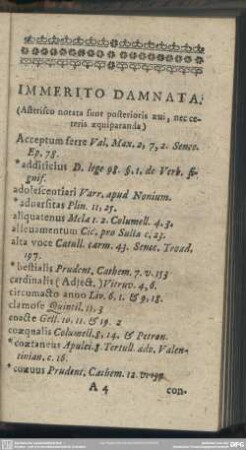 IMMERITO DAMNATA.
(Asterisco notata sunt posterioris ævi, nec ce-
teris æquiparanda)
Acceptum ferre Val. Max. 2, 7, 2. Senec.
Ep. 78.
* addititius D. lege 98. §. 1. de Verb. si-
gnif.
adolescentiari Varr. apud Nonium.
* adversitas Plin. 11, 25.
aliquatenus Mela 1. 2. Columell. 4, 3.
alicuamentum Cic. pro Sulla c. 23.
alta voce Catull. carm. 43. Senec. Troad.
197.
* bestialis Prudent. Cathem. 7. v. 153
cardinalis (Adject.) Vitruv. 4, 6.
circumacto anno Liv. 6, 1. & 9, 18.
clamose Quintil. 11. 3
coacte Gell. 10. 11. & 19. 2
coæqualis Columell. 8. 14. & Petron.
* coætaneus Apulei. 8. Tertull. adv. Valen-
tinian. c. 16.
* coævus Prudent. Cathem. 12.
A 4 con-